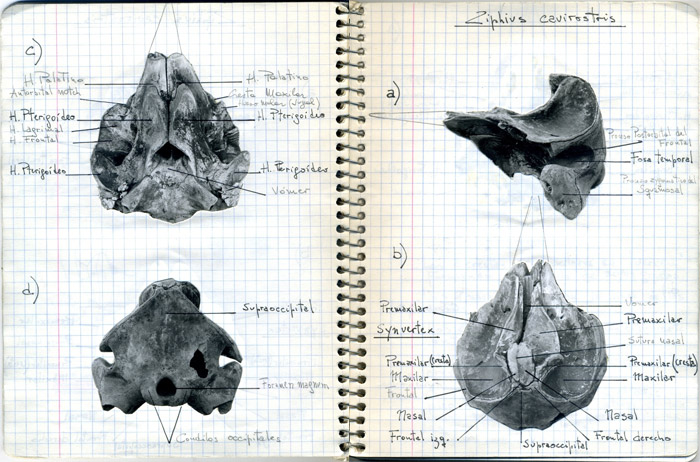 c)
H. Palatino
H. Palatino
Antorbital notch
Cresta Maxilar
H. Pterigoideo
H. Pterigoideo
H. Lagrimal
H. Frontal
H. Pterigoideo
H. Perigoideo
Vómer
d)
Supraoccipital
Foramen magnum
Cóndilos occipitales
Ziphius cavirostris
a)
Postorbital del
Frontal
Fosa temporal
Squamosal
b)
Vomer
Premaxilar
Premaxilar
Synvertex
Sutura nasal
Premaxilar (cresta)
Premaxilar (cresta)
Maxilar
Maxilar
Frontal
Nasal
Nasal
Frontal izq.
Frontal derecho
Supraoccipital